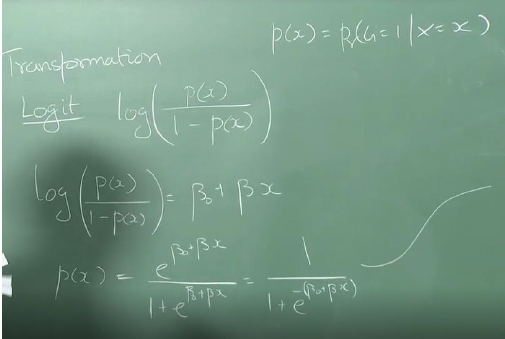 p(x) = Pr(G=1 | X=x)
Transformation
Logit log(p(x)/(1 - p(x)))
log(p(x)/(1-p(x))) = β₀ + βx
p(x) = e^(β₀+βx)/(1+e^(β₀+βx)) = 1/(1+e^(-(β₀+βx)))